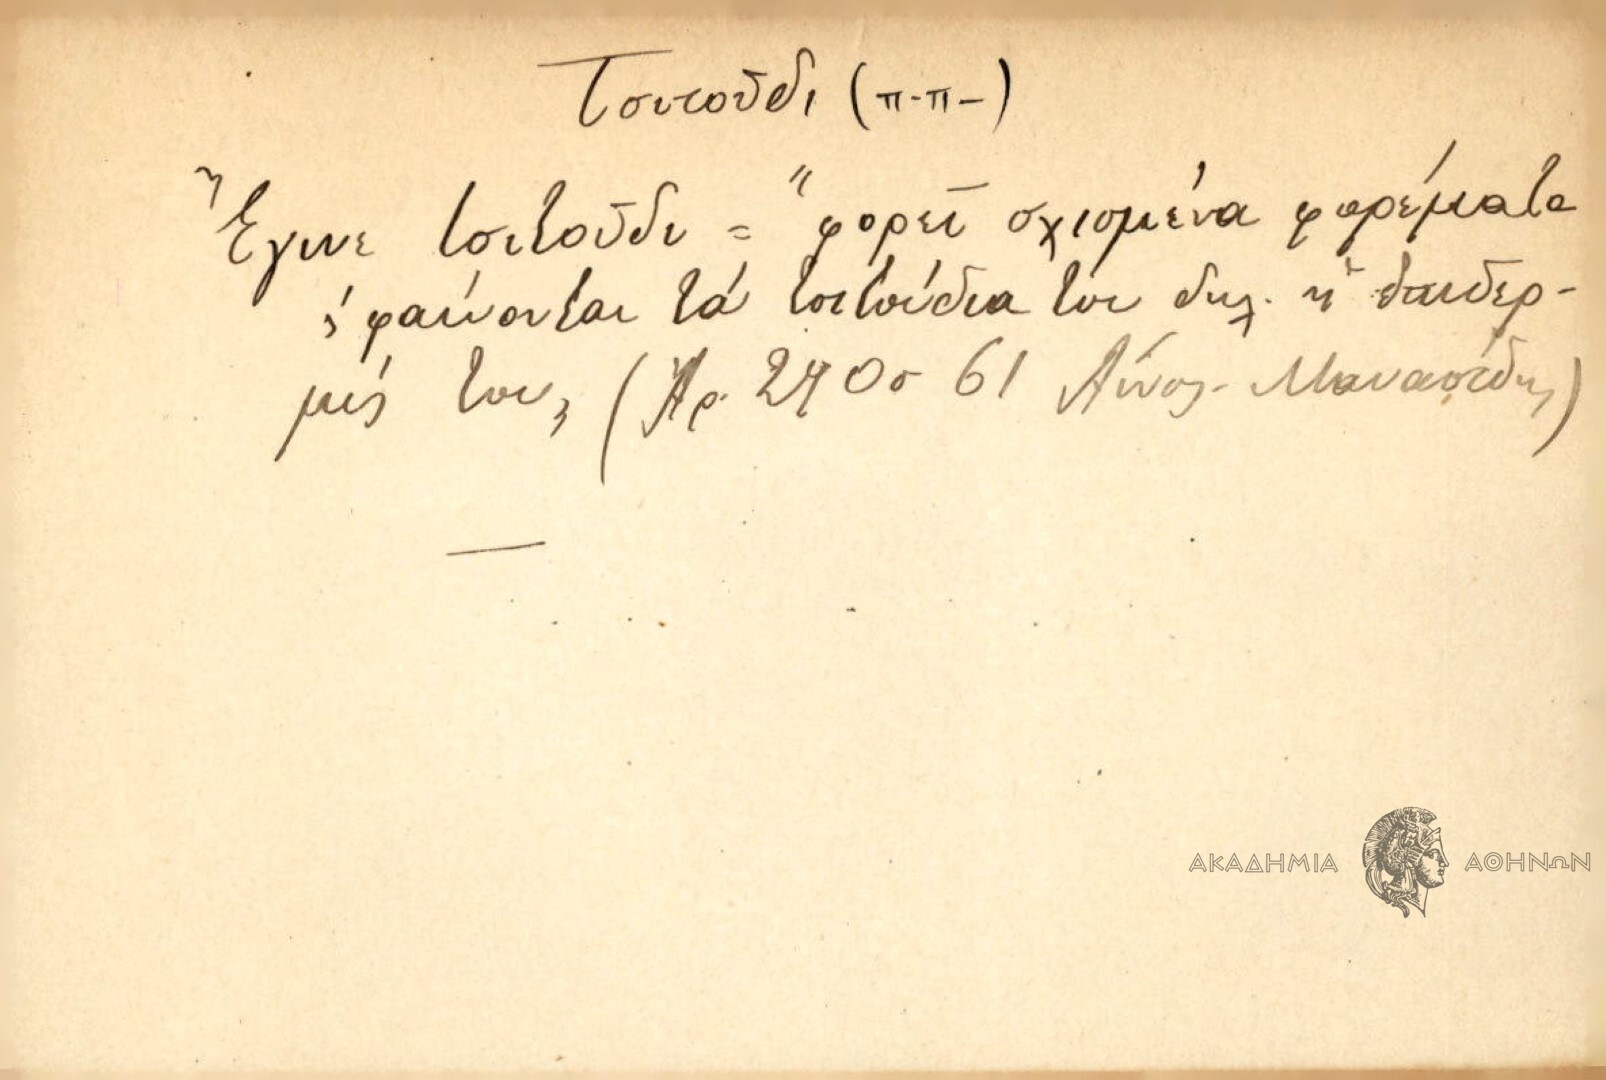 Τσιτοῦδι (π.π-)
Ἔγινε τσιτοῦδι = "φορεῖ σχισμένα φορέματα
ς φαίνονται τά τσιτούδια του δηλ. ἡ ἐπιδερ-
μίς του, (Ἀρ. 240 σ 61 Αἶνος - Μανασείδης)
ΑΚΑΔΗΜΙΑ ΑΘΗΝΩΝ